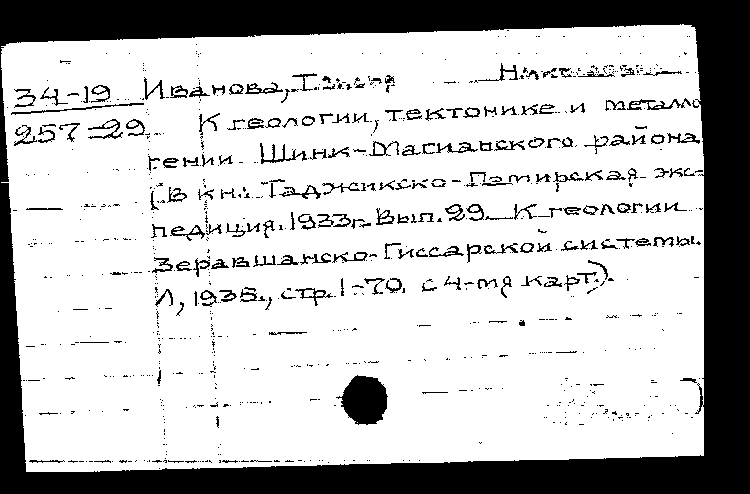 34-19 Иванова, Т Николаевна
257=29 К геологии, тектонике и металло
гении Шинк-Магианского района
(В кн.: Таджикско-Памирская экс-
педиция. 1933г. Вып. 29. К геологии
Зеравшанско-Гиссарской системы.
Л, 1935., стр. 1-70. с 4-мя карт.).